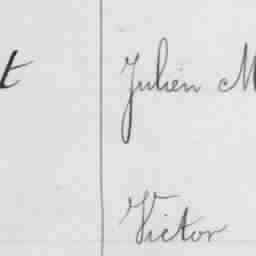 t Julien M
Victor